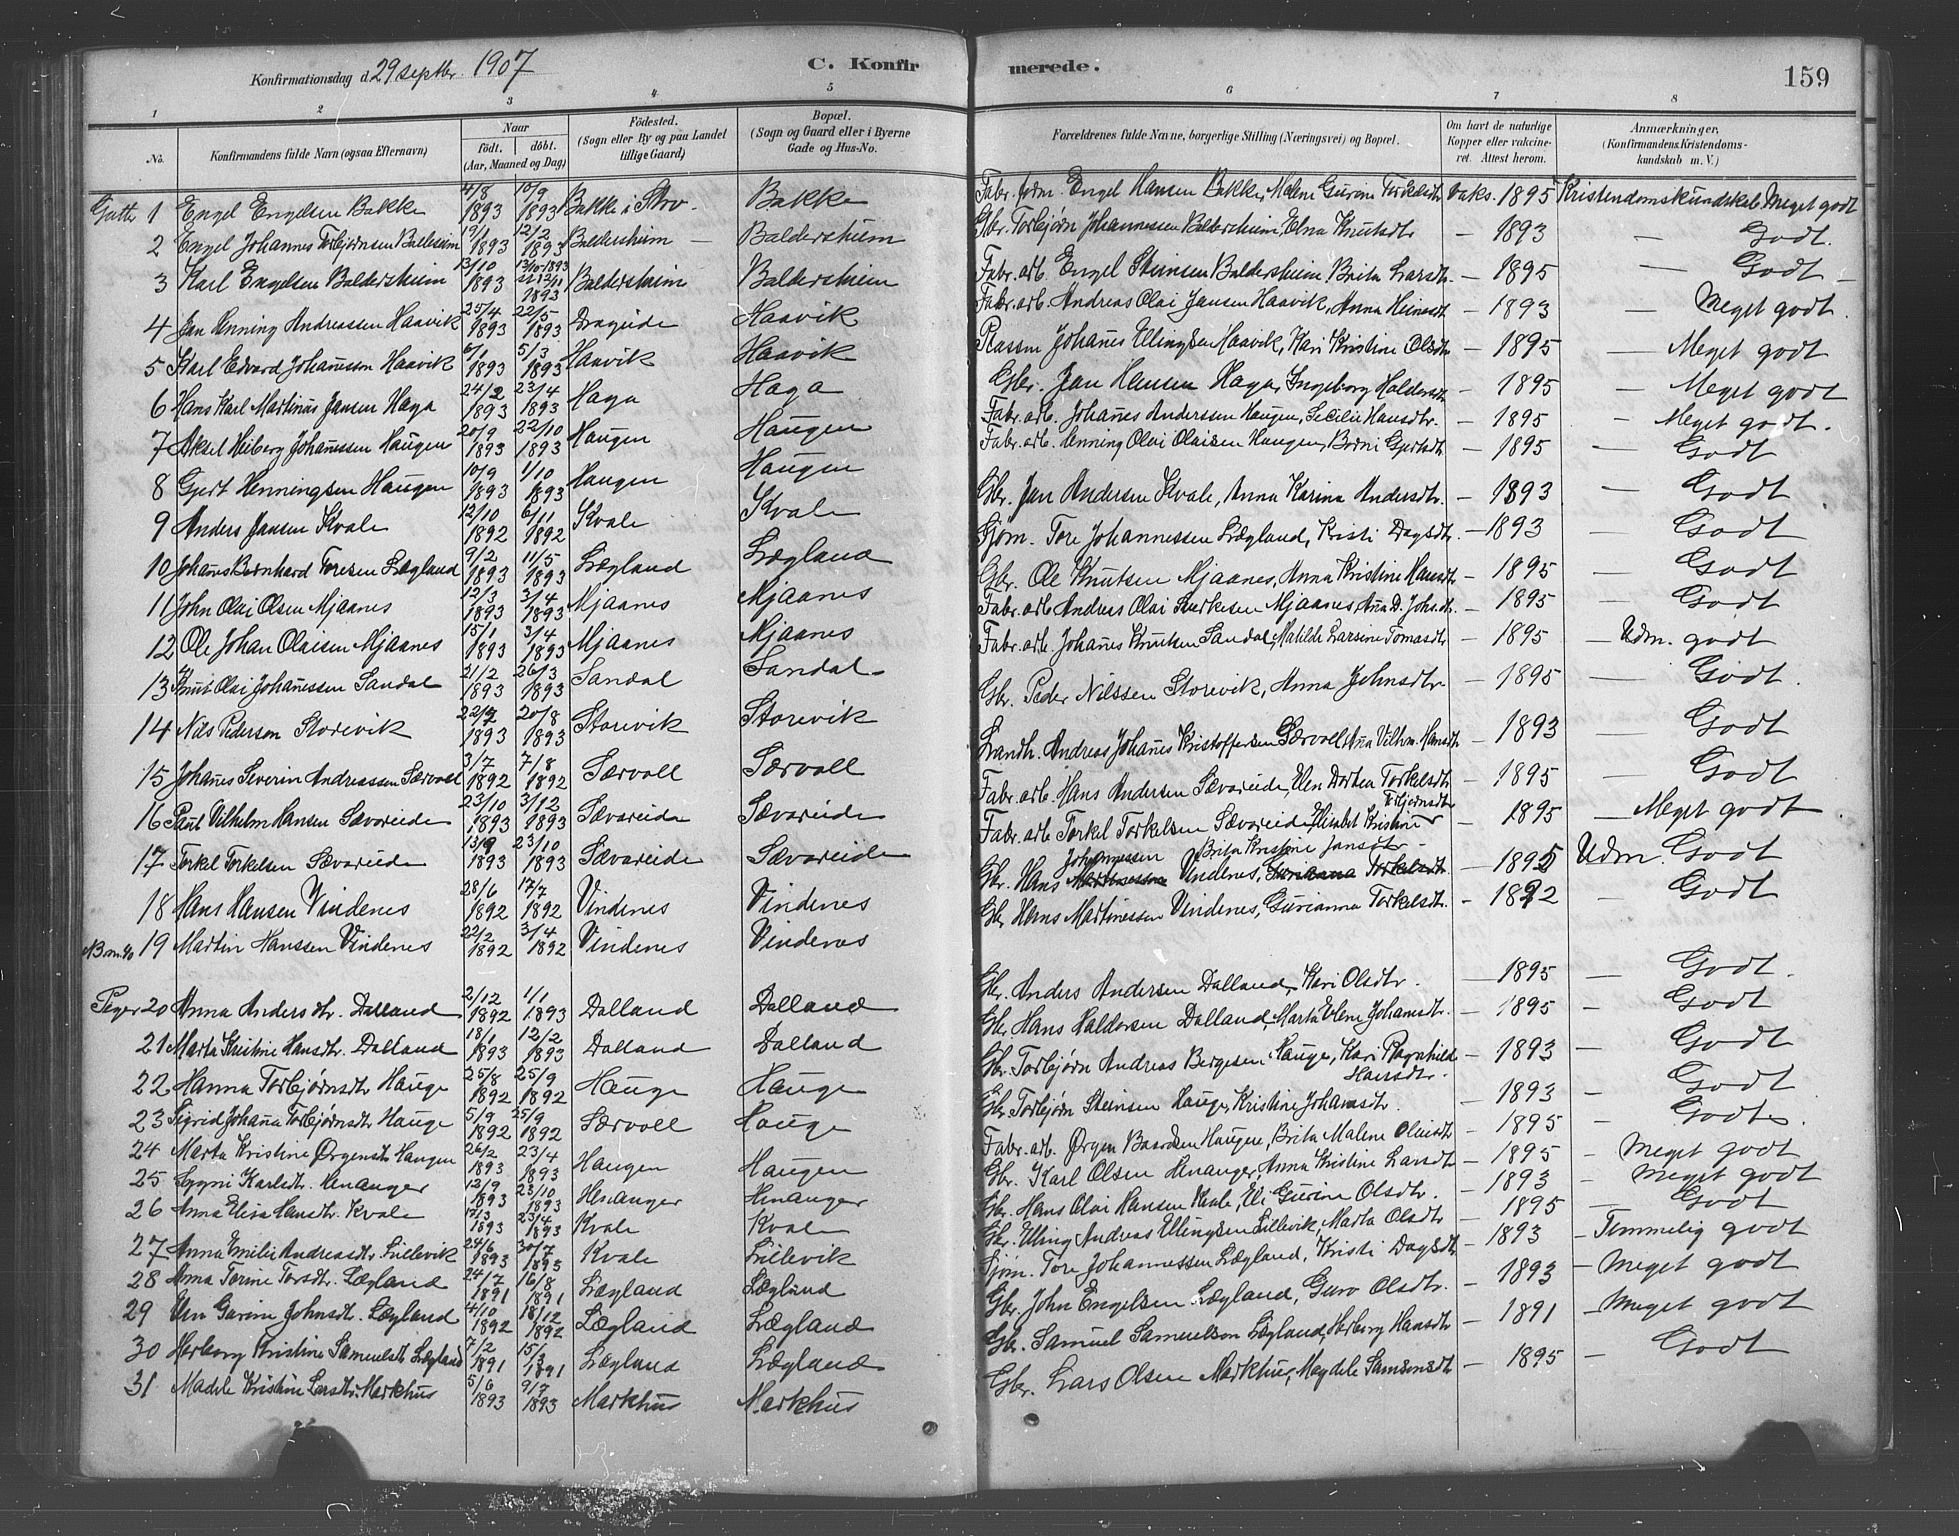 Konfirmationsdag d. 29 septbr. 1907
C. Konfir
merede.
159
1 2 3 4 5 6 7 8
No. Konfirmandens fulde Navn (ogsaa Efternavn) Naar født. døbt. (Aar, Maaned og Dag) Fødested. (Sogn eller By og paa Landet tillige Gaard) Bopæl. (Sogn og Gaard eller i Byerne Gade og Hus-No. Forældrenes fulde Navne, borgerlige Stilling (Næringsvei) og Bopæl. Om havt de naturlige Kopper eller vakcineret. Attest herom. Anmærkninger, (Konfirmandens Kristendomskundskab m. V.)
Gutter 1 Engel Engelsen Bakke 4/8 1893 10/9 1893 Bakke i Strv. Bakke Fabr. Engel Hansen Bakke, Malene Gurine Torkelsdtr vaks. 1895 Kristendomskundskab Meget godt
2 Engel Johannes Torbjørnsen Baldersheim 19/1 1893 12/2 1893 Baldersheim — Baldersheim Gbr. Torbjørn Johannessen Baldersheim, Elna Knutsdtr — 1893 — Godt.
3 Karl Engelsen Baldersheim 13/10 1893 13/10-1893 12/11 1893 Baldersheim Baldersheim Fabr. arb. Engel Steinsen Baldersheim Brita Larsdtr. — 1895 — Godt
4 Jan Henning Andreassen Haavik 25/4 1893 22/5 1893 Drageide Haavik Fabr. arb. Andreas Olai Jansen Haavik, Anna Heinesdt — 1893 — Meget godt.
5 Karl Edvard Johannessen Haavik 6/1 1893 5/3 1893 Haavik Haavik Plassm Johanes Ellingsen Haavik, Kari Kristine Olsdtr — 1895 — Meget godt
6 Hans Karl Martinus Jansen Haga 24/2 1893 23/4 1893 Haga Haga Gbr. Jan Hansen Haga, Ingeborg Haldorsdtr — 1895 — Meget godt
7 Aksel Heiberg Johanessen Haugen 20/9 1893 22/10 1893 Haugen Haugen Fabr. arb. Johanes Anderssen Haugen, Secilie Hansdtr. — 1895 — Meget godt.
8 Gjert Henningsen Haugen 10/9 1893 1/10 1893 Haugen Haugen Fabr. arb. Henning Olai Olaisen Haugen, Berni Gjertsdtr — 1895 — Godt
9 Anders Jansen Kvale 12/10 1892 6/11 1892 Kvale Kvale Gbr. Jan Andersen Kvale, Anna Karina Andersdtr. — 1893 — Godt
10 Johanes Bernhard Toresen Lægland 9/2 1893 11/5 1893 Lægland Lægland Sjøm. Tore Johannessen Lægland, Kristi Dagsdtr. — 1893 — Godt
11 John Olai Olsen Mjaanes 12/3 1893 3/4 1893 Mjaanes Mjaanes Gbr. Ole Knutsen Mjaanes, Anna Kristine Hansdtr — 1895 — Godt
12 Ole Johan Olaisen Mjaanes 15/1 1893 3/4 1893 Mjaanes Mjaanes Fabr. arb Andreas Olai Mjaanes, Ana D. Johsdtr. — 1895 — Godt
13 Knut Olai Johanessen Sandal 21/2 1893 26/3 1893 Sandal Sandal Fabr. arb. Johanes Knutsen Sandal, Matilde Larsine Tomasdtr — 1895 — Udm. godt
14 Nils Pederson Storevik 22/7 1893 20/8 1893 Storevik Storevik Gbr. Peder Nilssen Storevik, Anna Johnsdtr — 1895 — Godt.
15 Johanes Severin Andreassen Særvoll 3/7 1892 7/8 1892 Særvoll Særvoll Strandh. Andreas Johanes Kristoffersen Særvoll, Ana Vilhm. Hansdtr — 1893 — Godt
16 Paul Vilhelm Hansen Sævareide 23/10 1893 3/12 1893 Sævareide Sævareide Fabr. arb. Hans Andersen Sævareide, Elen Dortea Torkelsdtr — 1895 — Godt
17 Torkel Torkelsen Sævareide 13/9 1893 23/10 1893 Sævareide Sævareide Fabr. arb Torkel Torkelsen Sævareide, Elisabet Kristine Torbjørnsdtr — 1895 — Meget godt
18 Hans Hansen Vindenes 28/6 1892 17/7 1892 Vindenes Vindenes Gbr. Hans Johannessen Vindenes, Brita Kristine Jansdtr — 1895 Udm. Godt
19 Martin Hanssen Vindenes 22/2 1892 3/4 1892 Vindenes Vindenes Gbr Hans Martinessen Vindenes, Gurianna Torkelsdtr. — 1892 — Godt
Piger 20 Anna Andersdtr. Dalland 2/12 1892 1/1 1893 Dalland Dalland Gbr. Anders Andersen Dalland, Kari Olsdtr. — 1895 — Godt.
21 Marta Kristine Hansdtr. Dalland 18/1 1893 12/2 1893 Dalland Dalland Gbr. Hans Haldorsen Dalland, Marta Elene Johansdtr. — 1895 — Godt
22 Hanna Torbjørnsdtr Hauge 25/8 1892 25/9 1892 Hauge Hauge Gbr. Torbjørn Andreas Bergesen Hauge, Kari Ragnhild Hansdtr. — 1893 — Godt
23 Sigrid Johana Torbjørnsdtr Hauge 5/9 1892 25/9 1892 Særvoll Hauge Gbr. Torbjørn Steinsen Hauge, Kristine Johansdtr. — 1893 — Godt
24 Marta Kristine Ørgensdtr Haugen 26/2 1893 23/4 1893 Haugen Haugen Fabr. arb. Ørgen Baardsen Haugen, Brita Malene Olaisdtr — 1895 — Godt.
25 Sygni Karlsdtr. Henanger 12/9 1893 23/10 1893 Henanger Henanger Gbr. Karl Olsen Henanger, Anna Kristine Larsdtr — 1895 — Meget godt
26 Anna Elisa Hansdtr. Kvale 17/3 1893 23/4 1893 Kvale Kvale Gbr. Hans Olai Hansen Kvale, Eli Gurine Olsdtr. — 1893 — Meget godt
27 Anna Emilie Andreasdtr Lillevik 24/6 1893 30/7 1893 Kvale Lillevik Gbr. Elling Andreas Ellingsen Lillevik, Marta Olsdtr — 1895 — Godt
28 Anna Torine Torsdtr. Lægland 24/7 1891 16/8 1891 Lægland Lægland Sjøm. Tore Johannessen Lægland, Kristi Dagsdtr — 1893 — Temmelig godt
29 Gurine Johnsdtr. Lægland 4/10 1892 18/12 1892 Lægland Lægland Gbr. John Engelsen Lægland, Guro Olsdtr. — 1893 — Meget godt
30 Herborg Kristine Samuelsdtr Lægland 7/2 1891 15/3 1891 Lægland Lægland Gbr. Samuel Samuelson Lægland, Herborg Hansdtr — 1891 — Meget godt
31 Madele Kristine Larsdtr. Markhus 5/6 1893 9/7 1893 Markhus Markhus Gbr. Lars Olsen Markhus, Magdele Samsonsdtr — 1895 — Godt